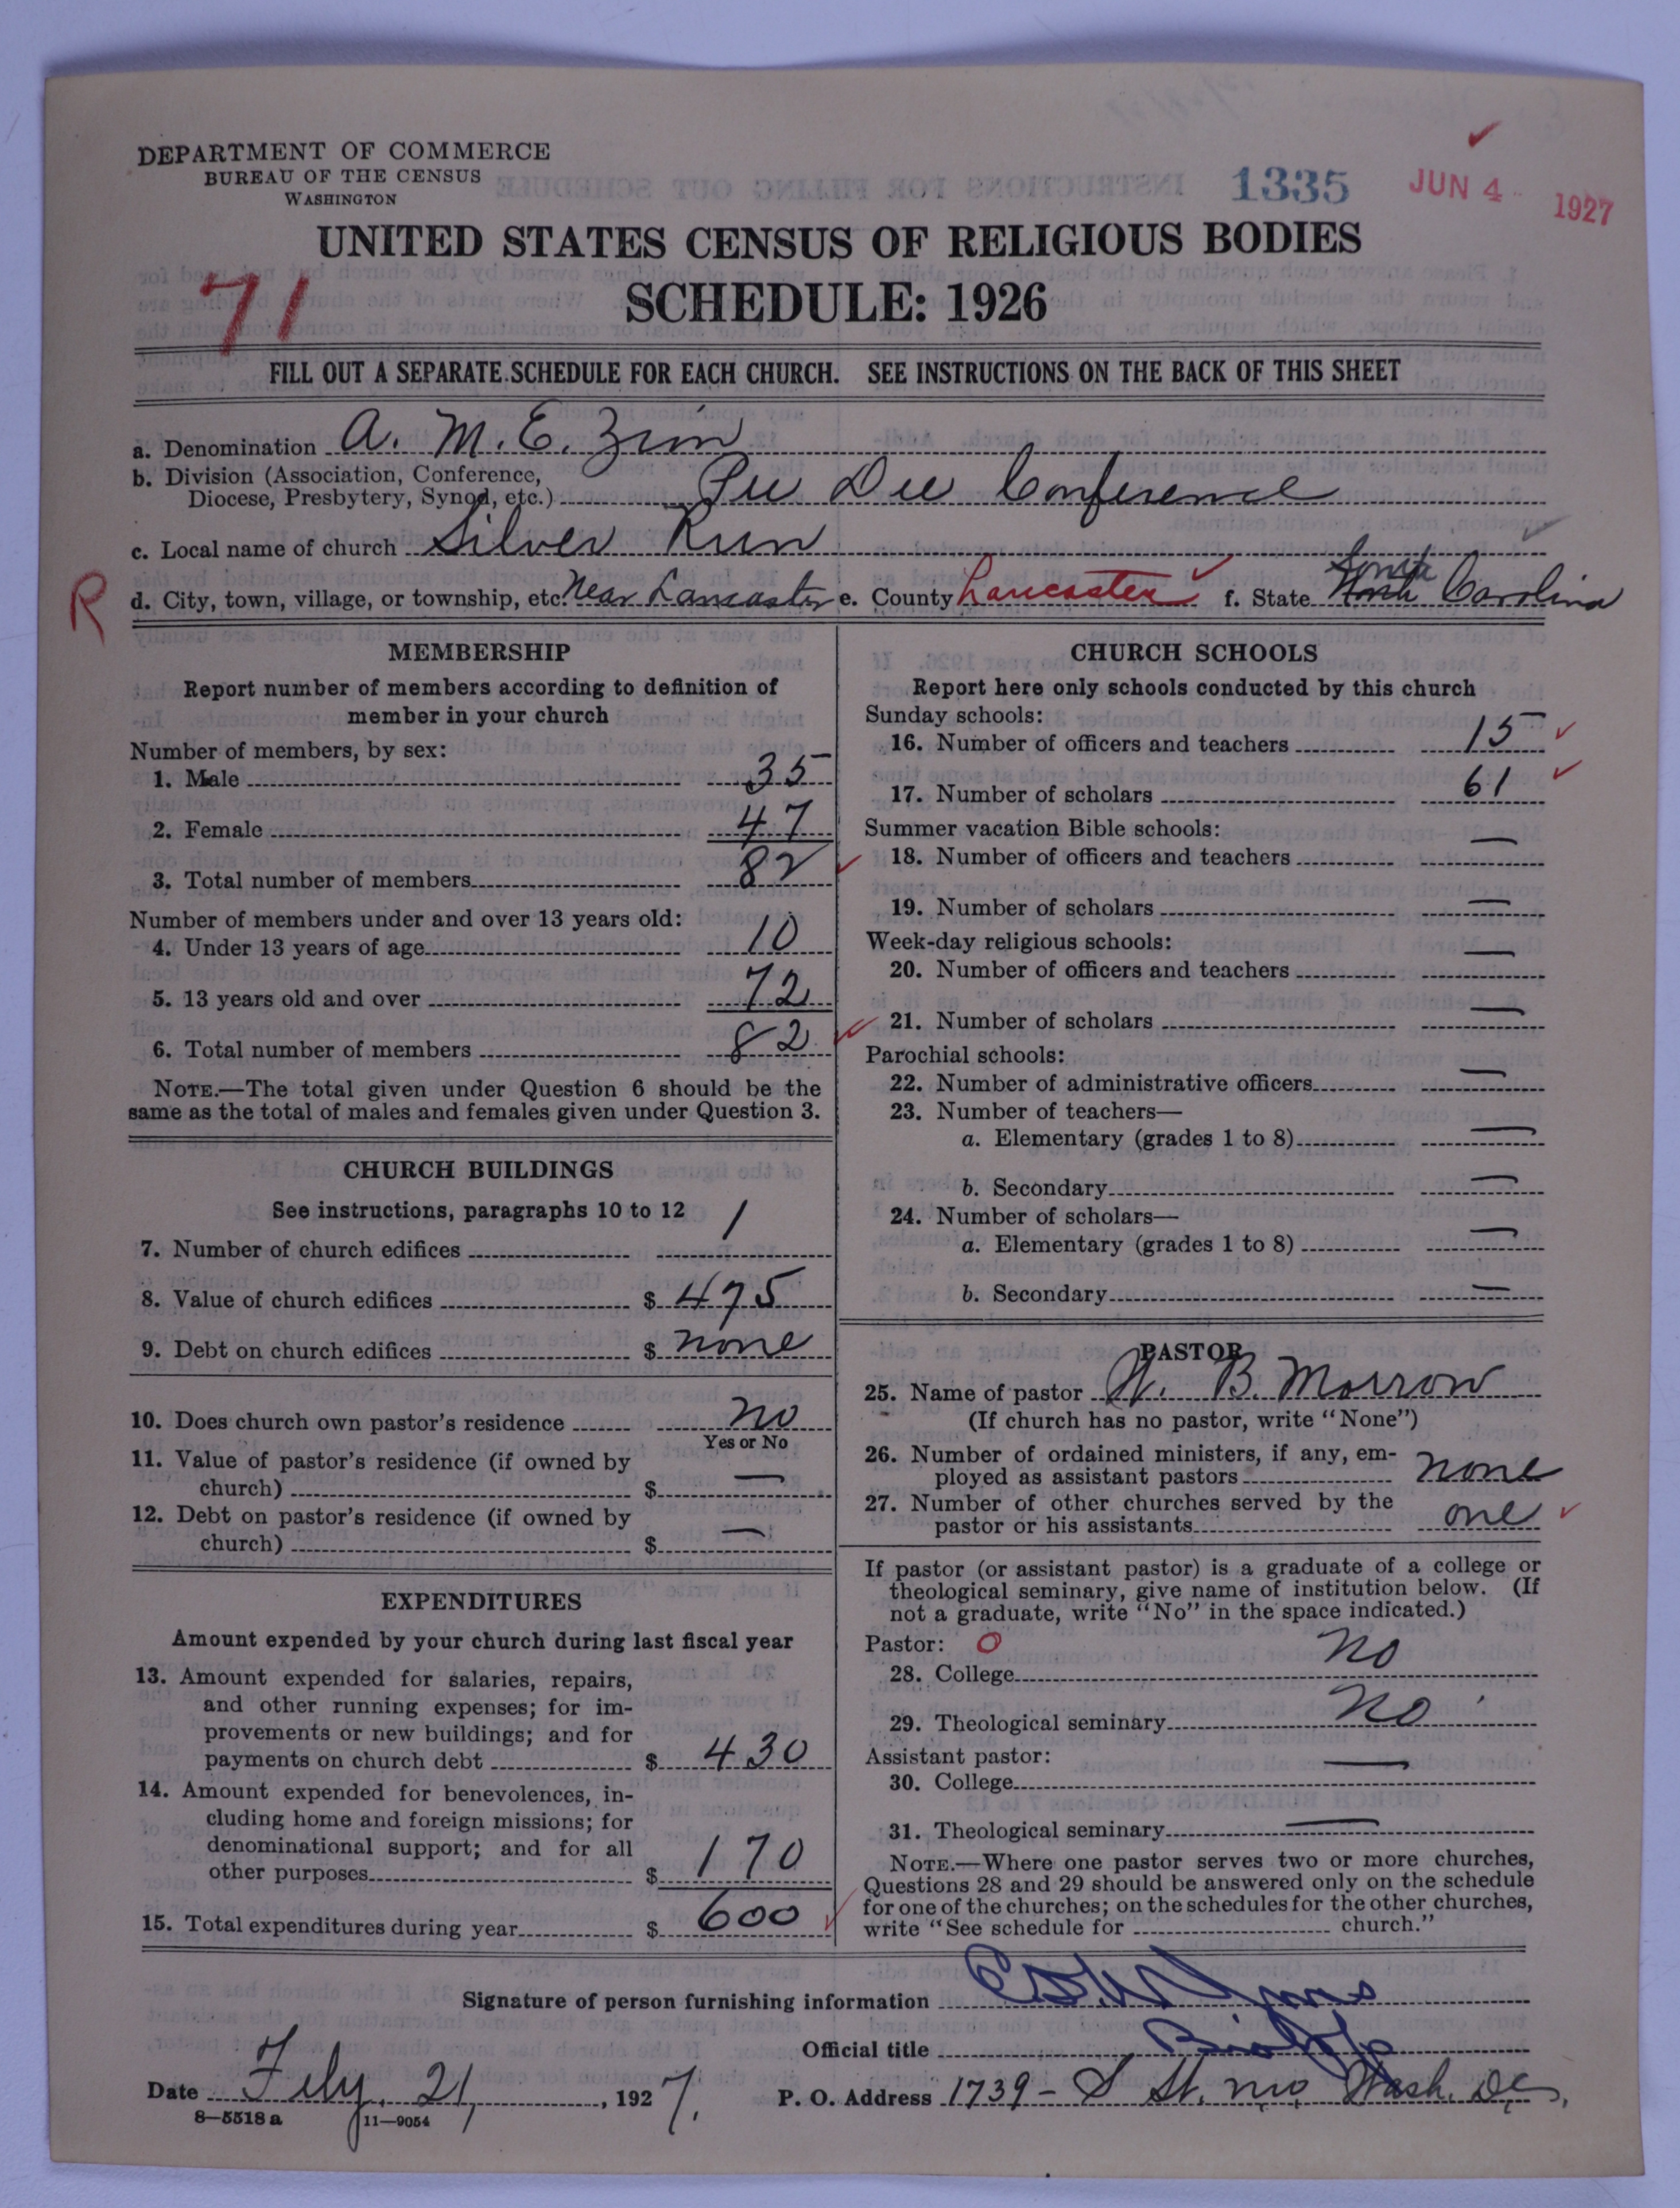 DEPARTMENT OF COMMERCE
BUREAU OF THE CENSUS
WASHINGTON
1335
JUN 4 1927
UNITED STATES CENSUS OF RELIGIOUS BODIES
71
SCHEDULE: 1926
FILL OUT A SEPARATE SCHEDULE FOR EACH CHURCH. SEE INSTRUCTIONS ON THE BACK OF THIS SHEET
a. Denomination A. M. E. Zion
b. Division (Association, Conference,
Diocese, Presbytery, Synod, etc.) Pee Dee Conference
c. Local name of church Silver Run
R
d. City, town, village, or township, etc. Near Lancaster e. County Lancaster f. State North South Carolina
MEMBERSHIP
Report number of members according to definition of
member in your church
Number of members, by sex:
1. Male 35
2. Female 47
3. Total number of members 82
Number of members under and over 13 years old:
4. Under 13 years of age 10
5. 13 years old and over 72
6. Total number of members 82
NOTE.—The total given under Question 6 should be the
same as the total of males and females given under Question 3.
CHURCH BUILDINGS
See instructions, paragraphs 10 to 12
7. Number of church edifices 1
8. Value of church edifices $ 475
9. Debt on church edifices $ none
10. Does church own pastor's residence no
Yes or No
11. Value of pastor's residence (if owned by
church) $ —
12. Debt on pastor's residence (if owned by
church) $ —
EXPENDITURES
Amount expended by your church during last fiscal year
13. Amount expended for salaries, repairs,
and other running expenses; for im-
provements or new buildings; and for
payments on church debt $ 430
14. Amount expended for benevolences, in-
cluding home and foreign missions; for
denominational support; and for all
other purposes $ 170
15. Total expenditures during year $ 600
CHURCH SCHOOLS
Report here only schools conducted by this church
Sunday schools:
16. Number of officers and teachers 15
17. Number of scholars 61
Summer vacation Bible schools:
18. Number of officers and teachers —
19. Number of scholars —
Week-day religious schools:
20. Number of officers and teachers —
21. Number of scholars —
Parochial schools:
22. Number of administrative officers —
23. Number of teachers—
a. Elementary (grades 1 to 8) —
b. Secondary —
24. Number of scholars—
a. Elementary (grades 1 to 8) —
b. Secondary —
PASTOR
25. Name of pastor W. B. Morrow
(If church has no pastor, write "None")
26. Number of ordained ministers, if any, em-
ployed as assistant pastors none
27. Number of other churches served by the
pastor or his assistants one
If pastor (or assistant pastor) is a graduate of a college or
theological seminary, give name of institution below. (If
not a graduate, write "No" in the space indicated.)
Pastor: O
28. College no
29. Theological seminary no
Assistant pastor:
30. College —
31. Theological seminary —
NOTE.—Where one pastor serves two or more churches,
Questions 28 and 29 should be answered only on the schedule
for one of the churches; on the schedules for the other churches,
write "See schedule for church."
Signature of person furnishing information
Official title Bishop
Date Feby. 21, 1927. P. O. Address 1739 - S St. nw, Wash. DC,
8—5518 a 11—9054